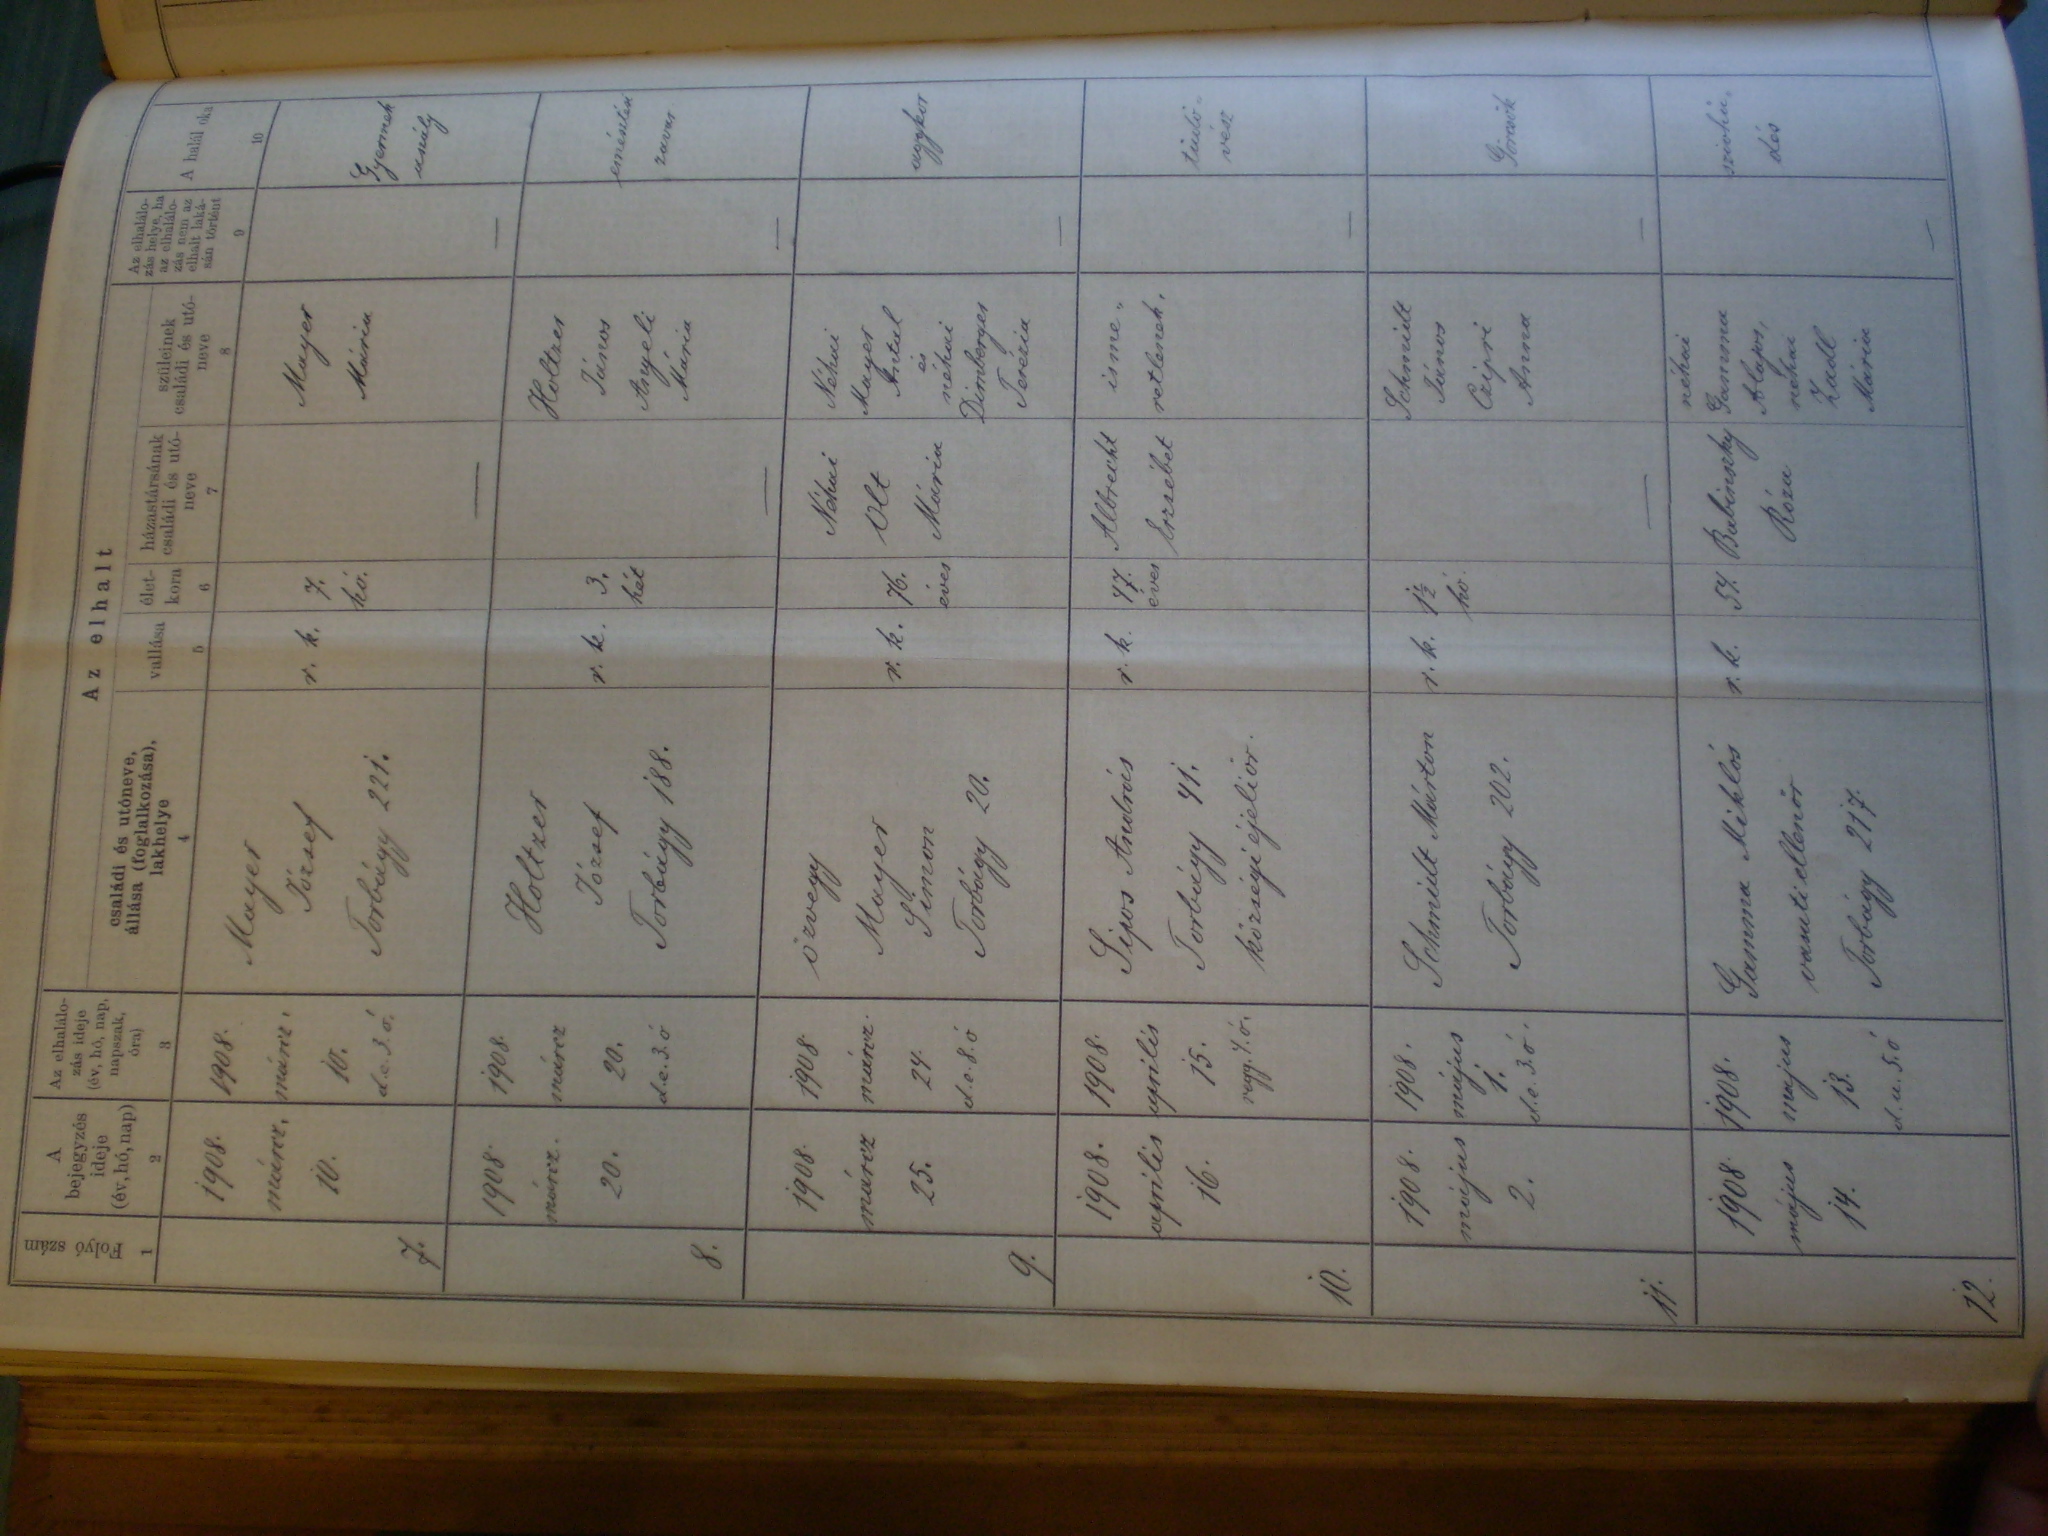 Az elhalt
Folyó szám
A
bejegyzés
ideje
(év, hó, nap)
Az elhalálo-
zás ideje
(év, hó, nap,
napszak,
óra)
családi és utóneve,
állása (foglalkozása),
lakhelye
vallása
élet-
kora
házastársának
családi és utó-
neve
szüleinek
családi és utó-
neve
Az elhalálo-
zás helye, ha
az elhalálo-
zás nem az
elhalt laká-
sán történt
A halál oka
1
2
3
4
5
6
7
8
9
10
7.
1908.
márcz.
10.
1908.
márcz.
10.
d.e. 3. ó.
Mayer
József
Torbágy 221.
r. k.
7.
hó.
—
Mayer
Mária
—
Gyermek
aszály
8.
1908
márcz.
20.
1908.
márcz
20.
d.e. 3. ó
Holtzer
József
Torbágy 188.
r. k.
3.
hét
—
Holtzer
János
Angeli
Mária
—
emésztési
zavar.
9.
1908.
márcz
25.
1908
márcz.
24.
d.e. 8. ó
özvegy
Mayer
Simon
Torbágy 20.
r. k.
76.
éves
Néhai
Olt
Mária
Néhai
Mayer
Antal
és
néhai
Dimberger
Terézia
—
aggkor
10.
1908.
április
16.
1908.
április
15.
Sipos András
Torbágy 41.
községi éjeliőr.
r. k.
47.
éves
Albrecht
Erzsébet
isme-
retlenek.
—
tüdő-
vész
11.
1908.
május
2.
1908.
május
1.
d.e. 3. ó.
Schmidt Márton
Torbágy 202.
r. k.
1½
hó.
—
Schmidt
János
Czipri
Anna
—
Görcsök
12.
1908.
május
14.
1908.
május
13.
d.u. 5. ó
Gamma Miklós
vasuti ellenőr
Torbágy 217.
r. k.
54.
Babinszky
Róza
néhai
Gamma
Alajos,
néhai
Zadl
Mária
—
szivhű-
dés